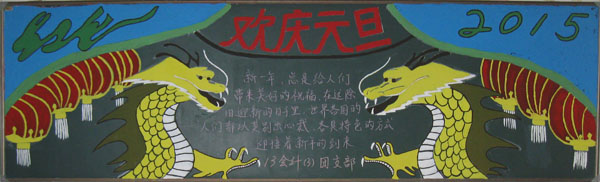 欢庆元旦
2015
新一年，总是给人们
带来美好的祝福，在这除
旧迎新的日子里，世界各国的
人们都以見到出心裁、各具特色的方式
迎接着新年的到来
13会计(3)团支部